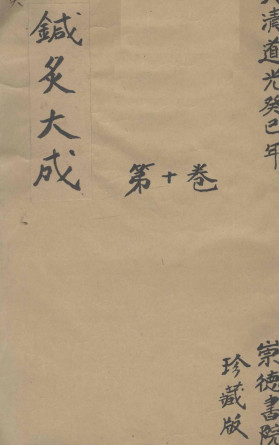 清道光癸巳年
崇德書院
珍藏版
第十卷
鍼灸大成